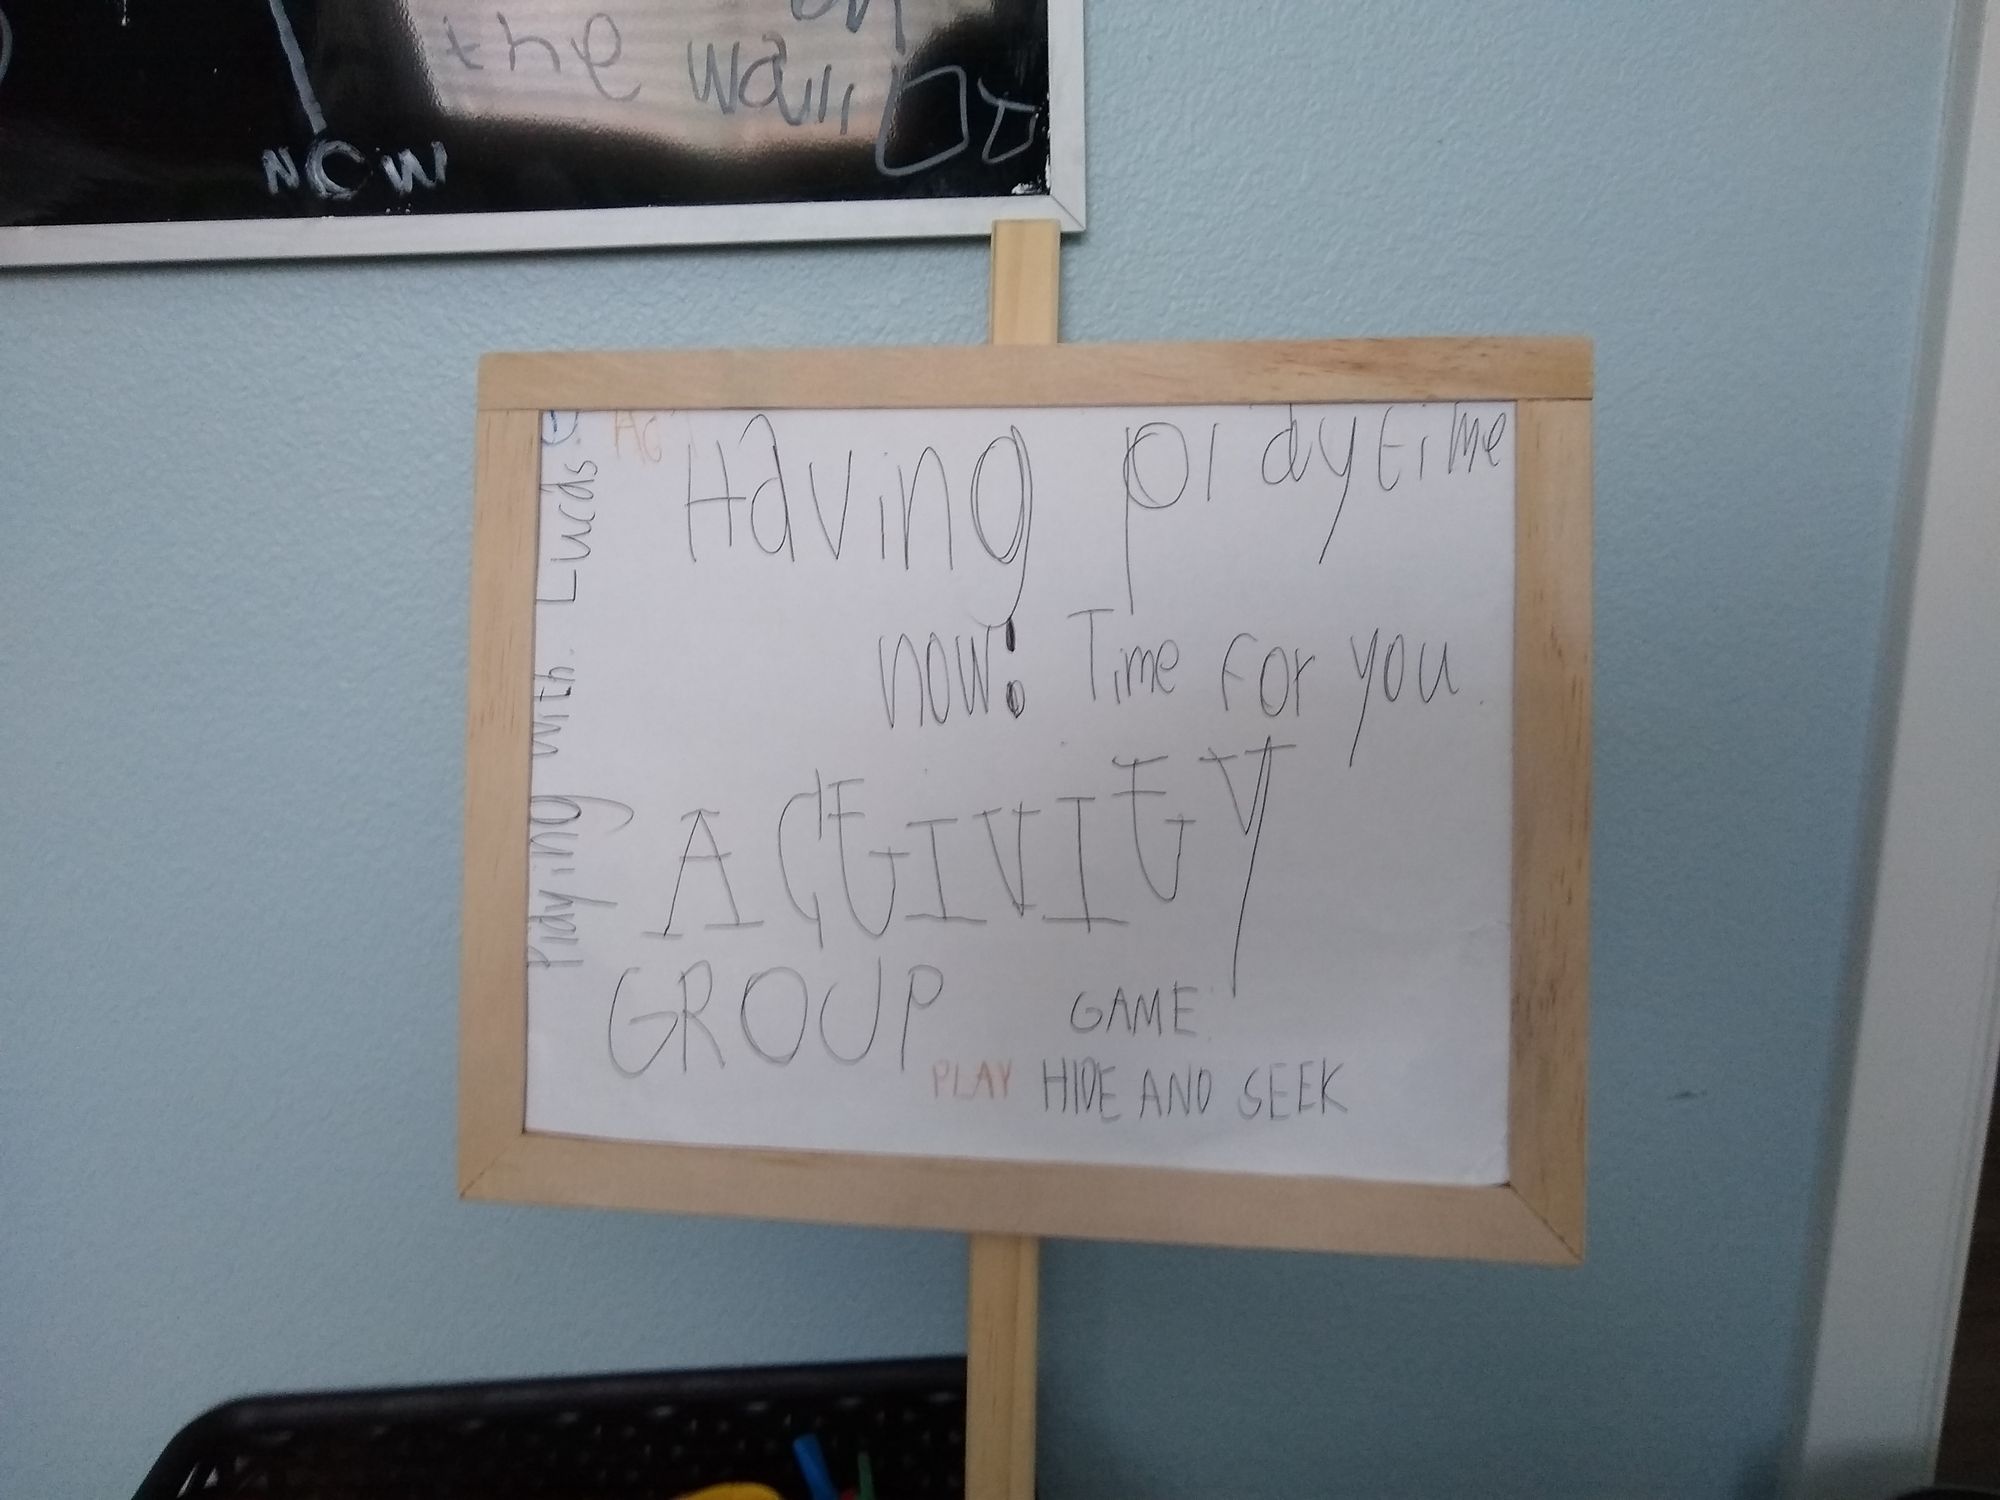 on
the wall
NOW
Playing with. Lucas
Ac
Having playtime
now! Time for you.
ACTIVITY
GROUP GAME
PLAY HIDE AND SEEK